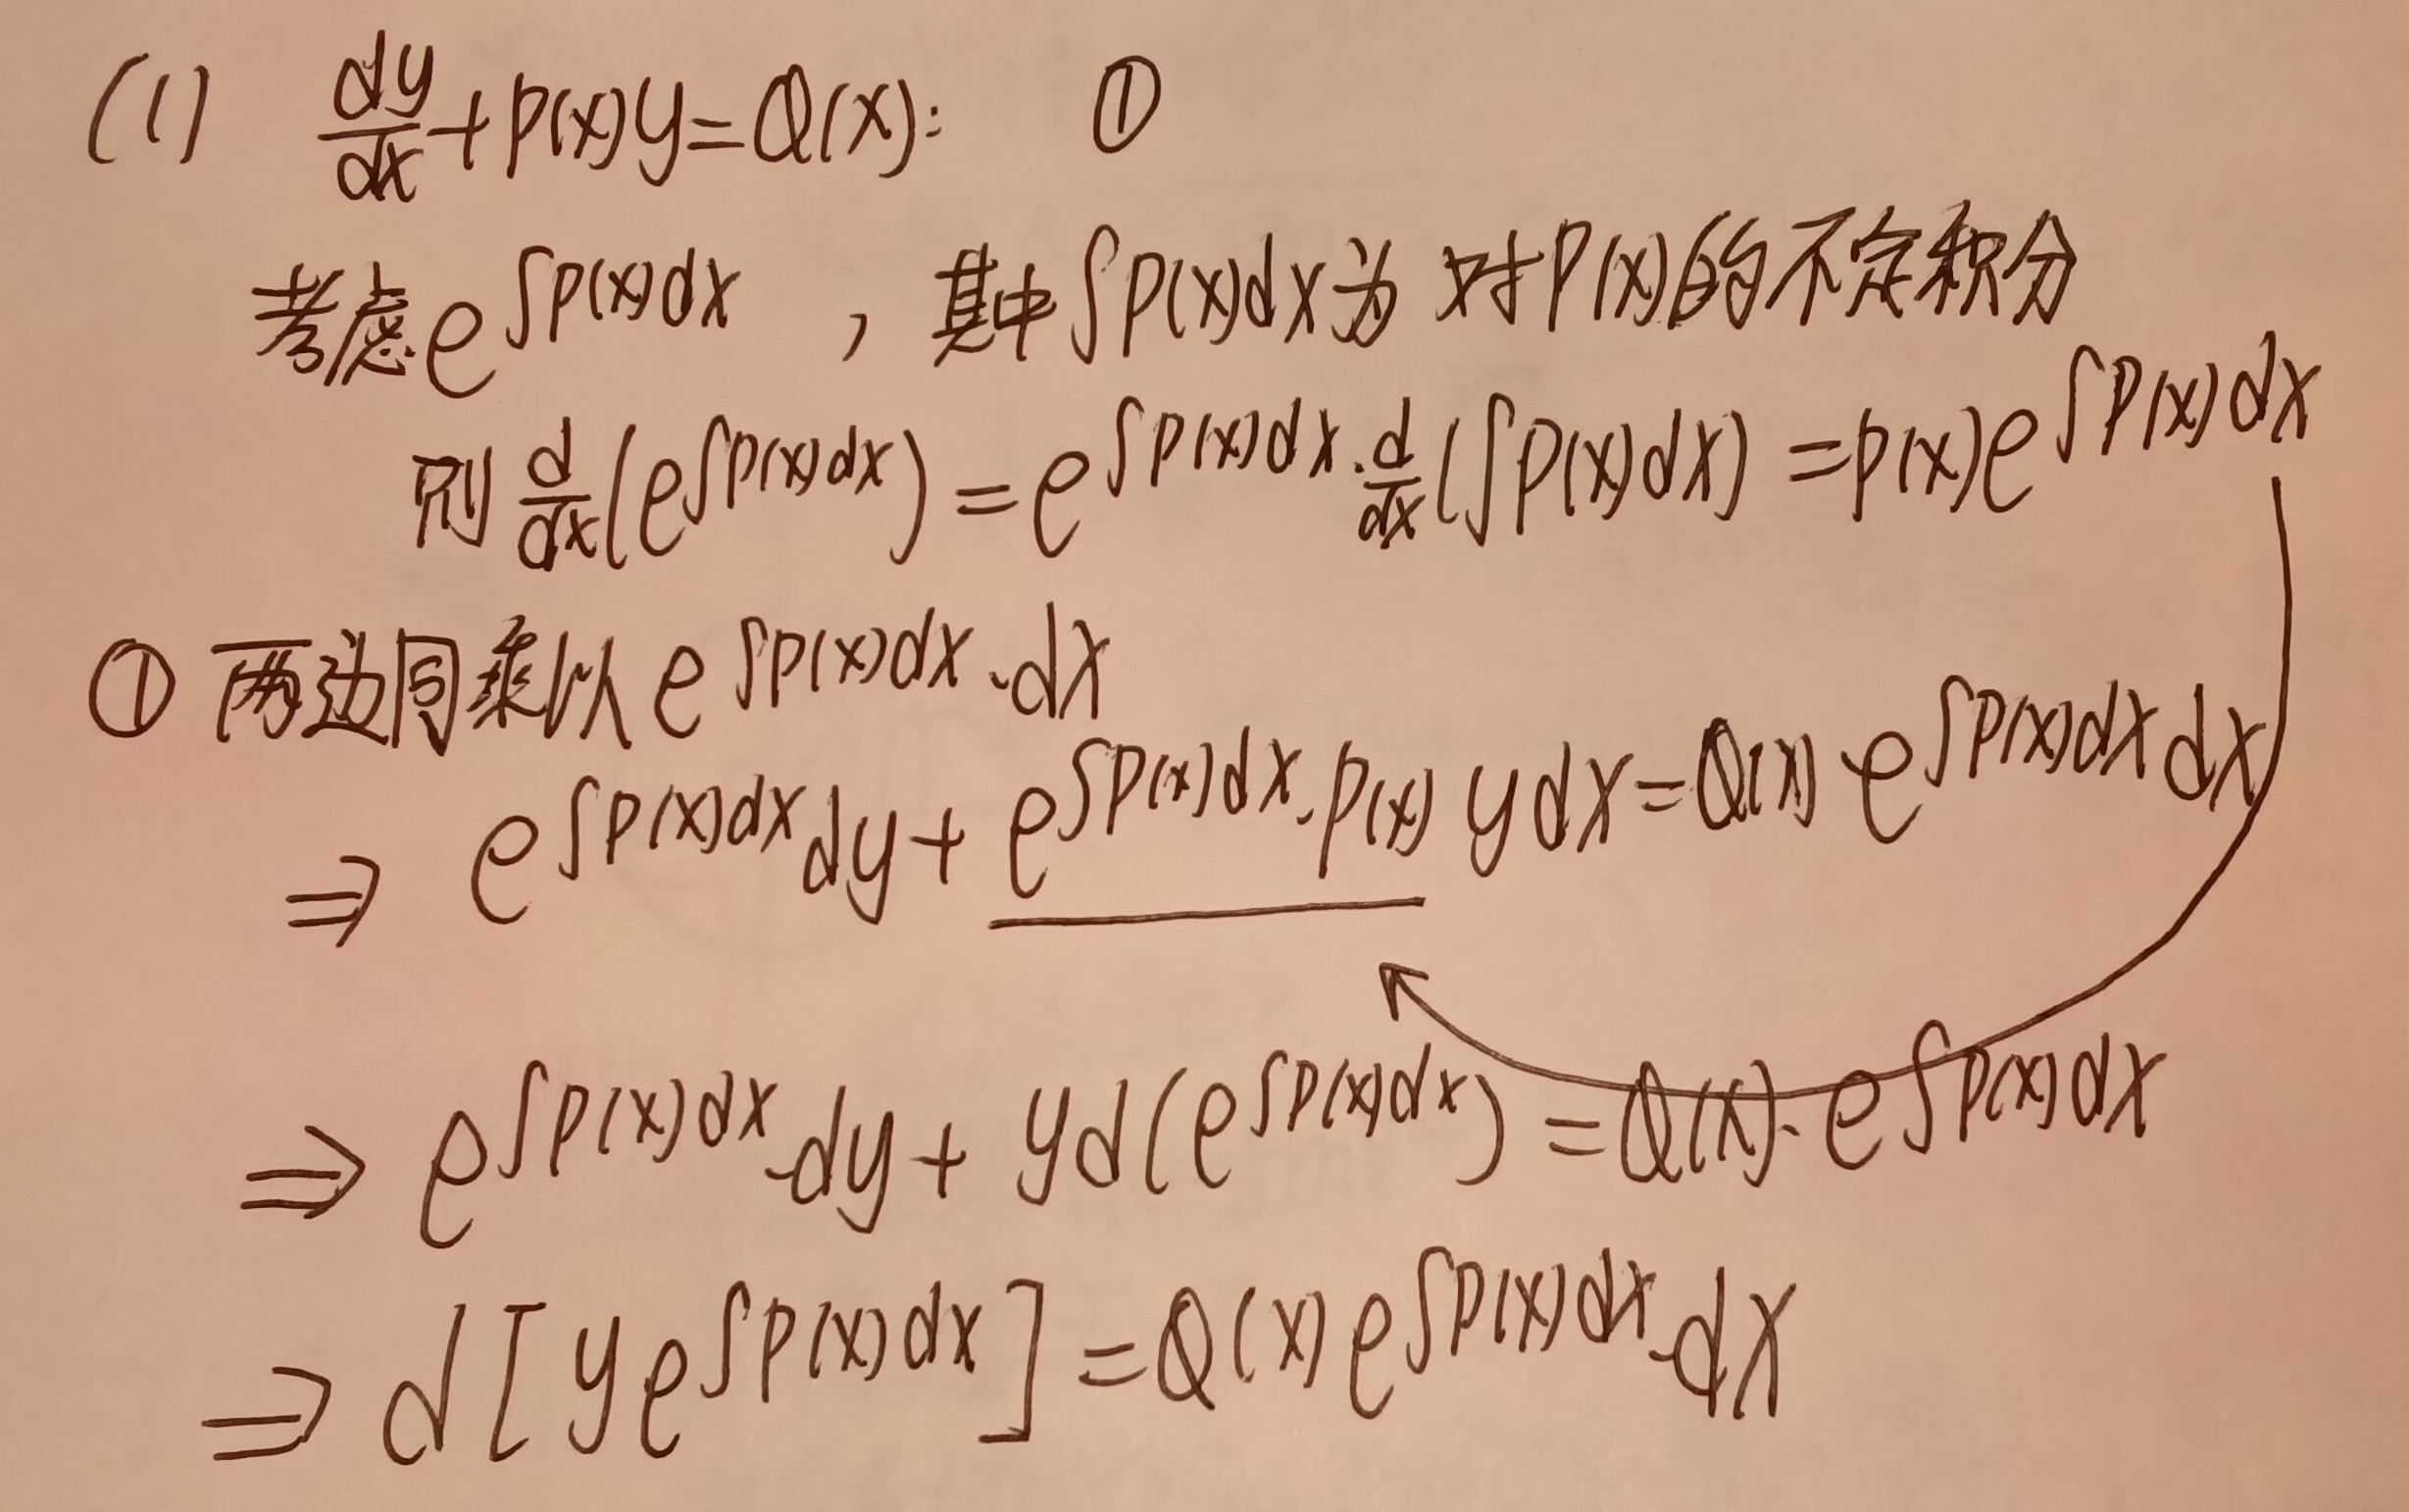 (1) dy/dx + P(x)y = Q(x): ①
考虑 e^{∫P(x)dx} , 其中∫P(x)dx为 对P(x)的不定积分
则 d/dx(e^{∫P(x)dx}) = e^{∫P(x)dx}·d/dx(∫P(x)dx) = P(x)e^{∫P(x)dx}
① 两边同乘以 e^{∫P(x)dx}·dx
⇒ e^{∫P(x)dx}dy + e^{∫P(x)dx}·P(x) y dx = Q(x) e^{∫P(x)dx}dx
⇒ e^{∫P(x)dx}·dy + yd(e^{∫P(x)dx}) = Q(x)·e^{∫P(x)dx}
⇒ d[ye^{∫P(x)dx}] = Q(x)e^{∫P(x)dx}·dx